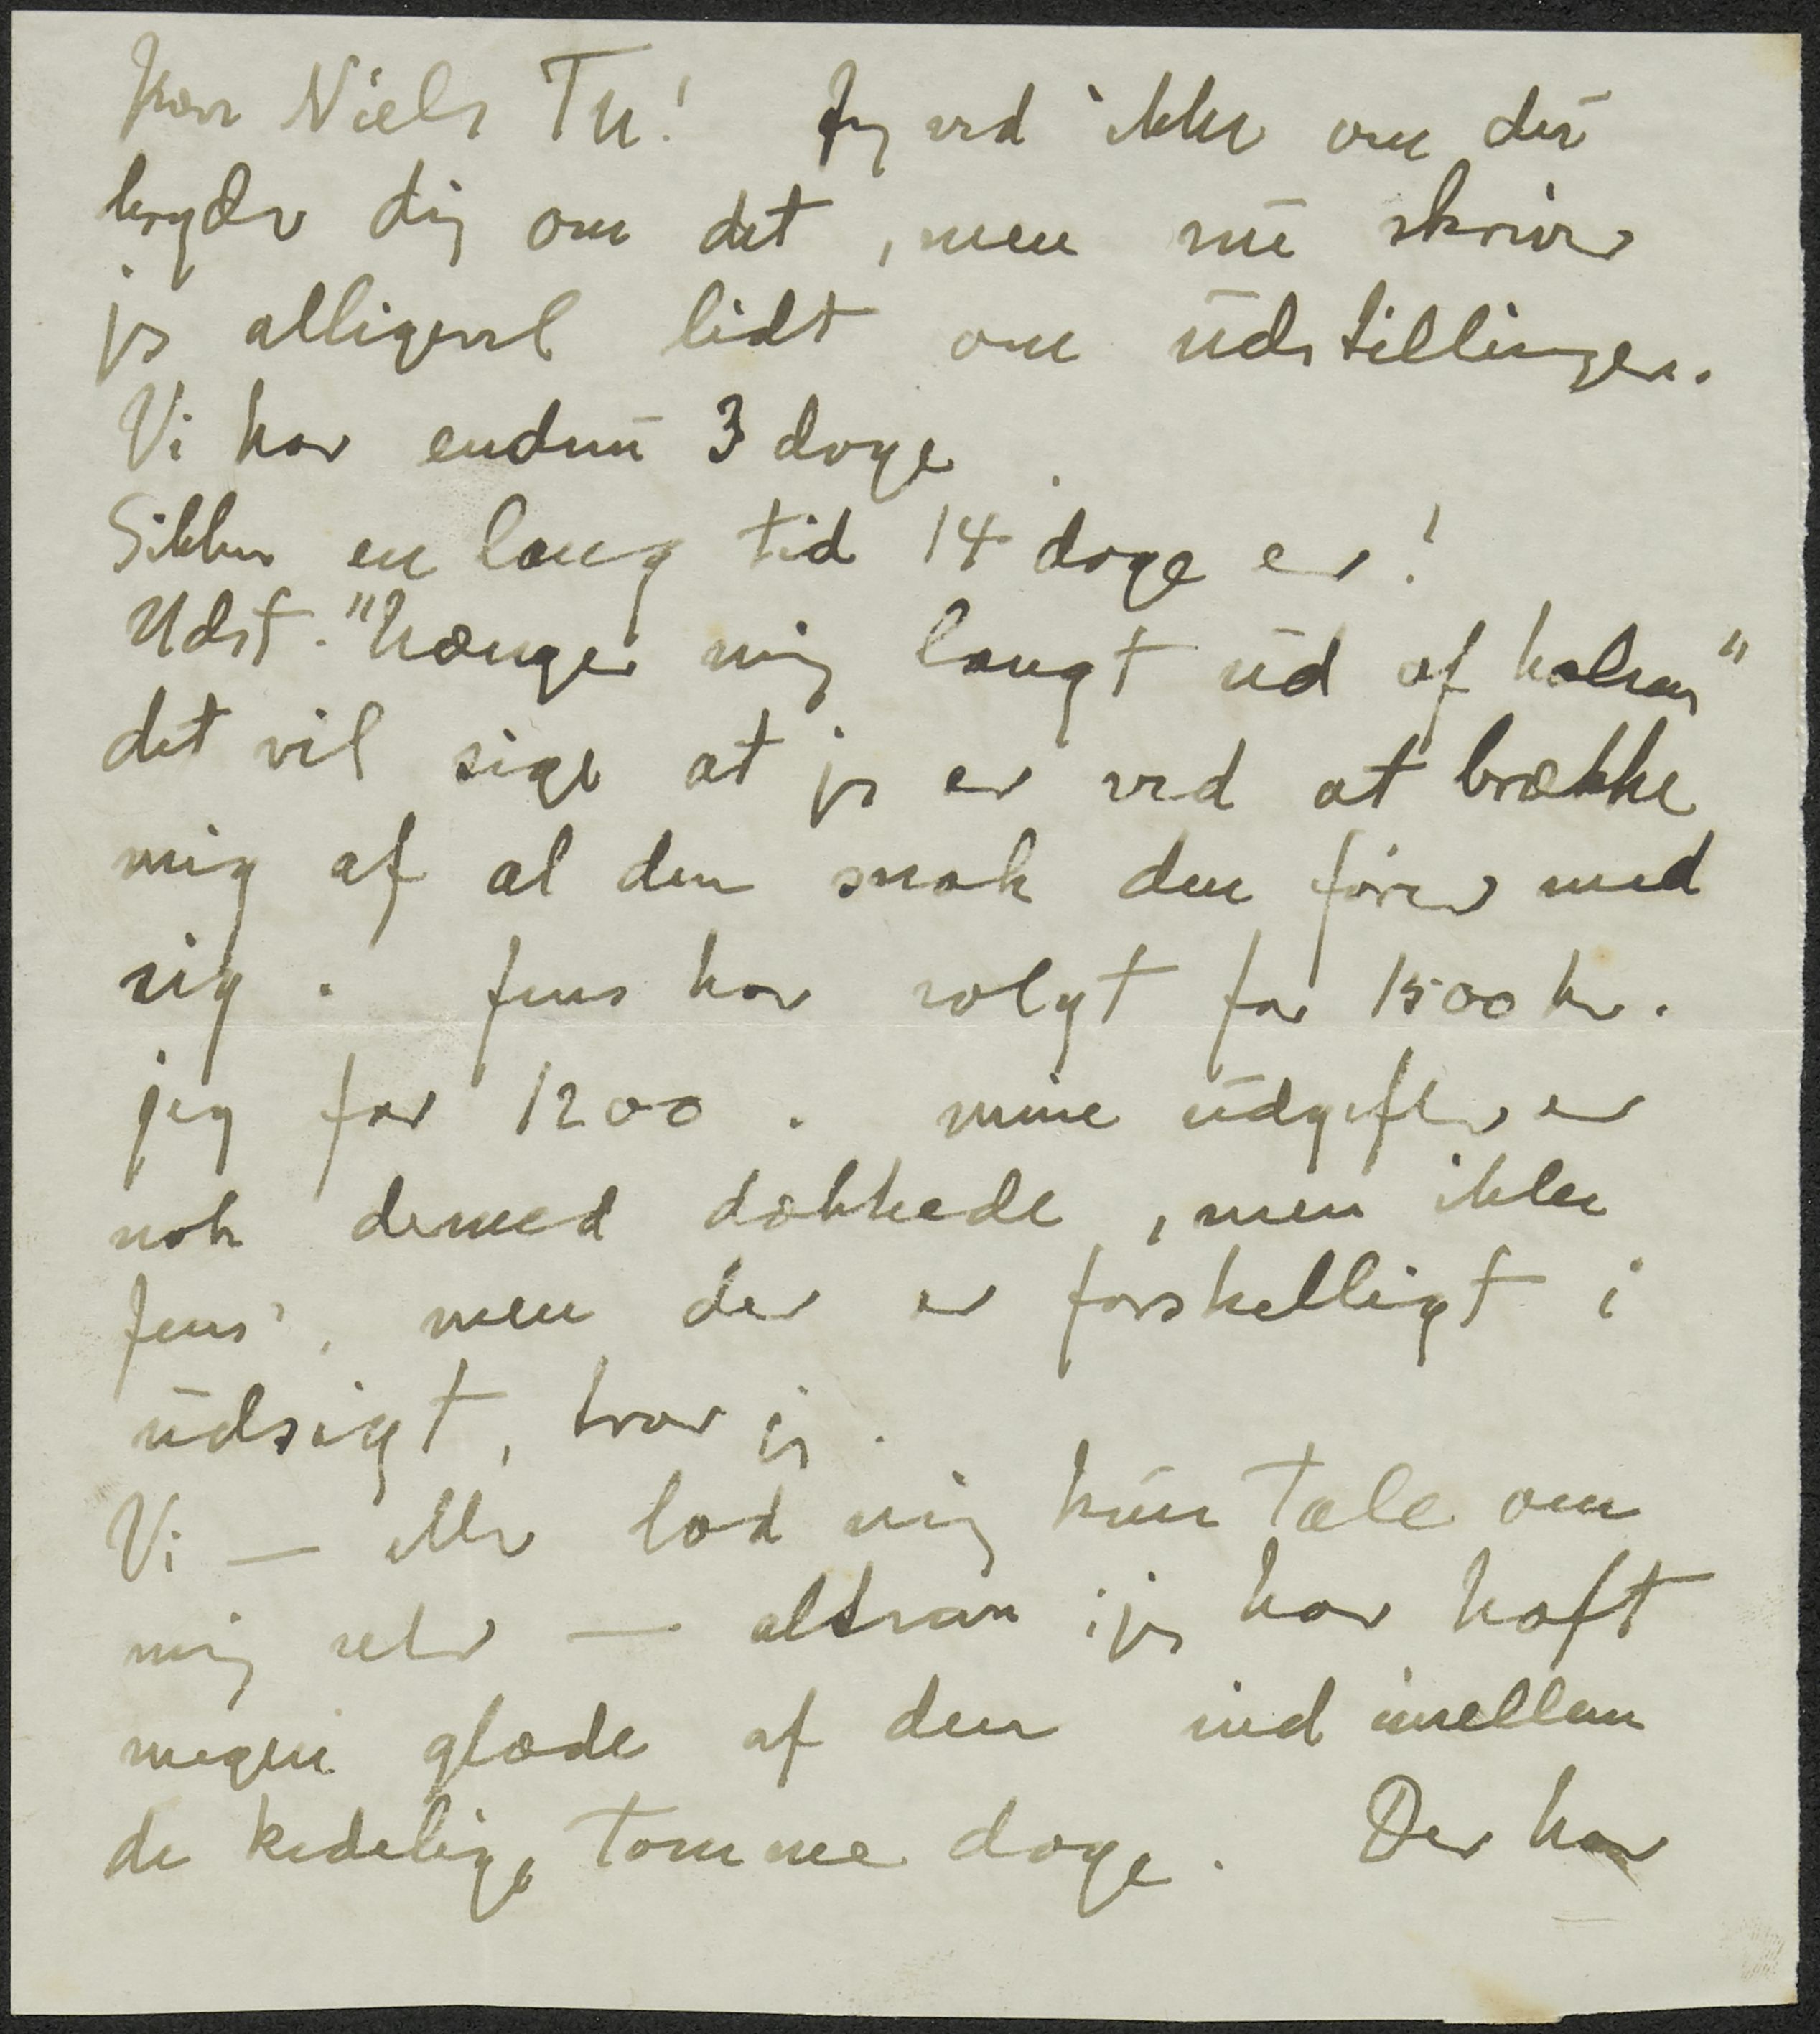 Kære Niels Th! Jeg ved ikke om du
bryder dig om det, men nu skriver
jeg alligevel lidt om udstillingen.
Vi har endnu 3 dage
Sikken en lang tid 14 dage er!
Udst. "hænger mig langt ud af halsen"
det vil sige at jeg er ved at brække
mig af al den snak den fører med
sig. Jens har solgt for 1500 kr.
jeg for 1200. mine udgifter er
nok dermed dækkede, men ikke
Jens', men der er forskelligt i
udsigt, tror jeg.
Vi — eller lad mig kun tale om
mig selv — altsaa: jeg har haft
megen glæde af den ind imellem
de kedelige, tomme dage. Der har